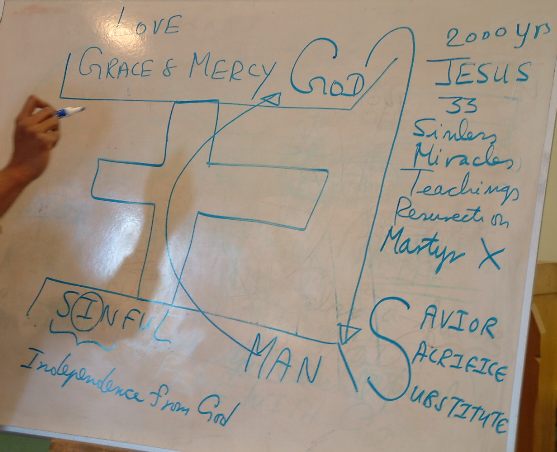 LOVE
GRACE & MERCY
GOD
SINFUL
Independence from God
MAN
2000 yrs
JESUS
33
Sinless
Miracles
Teachings
Resurection
Martyr X
SAVIOR
SACRIFICE
SUBSTITUTE